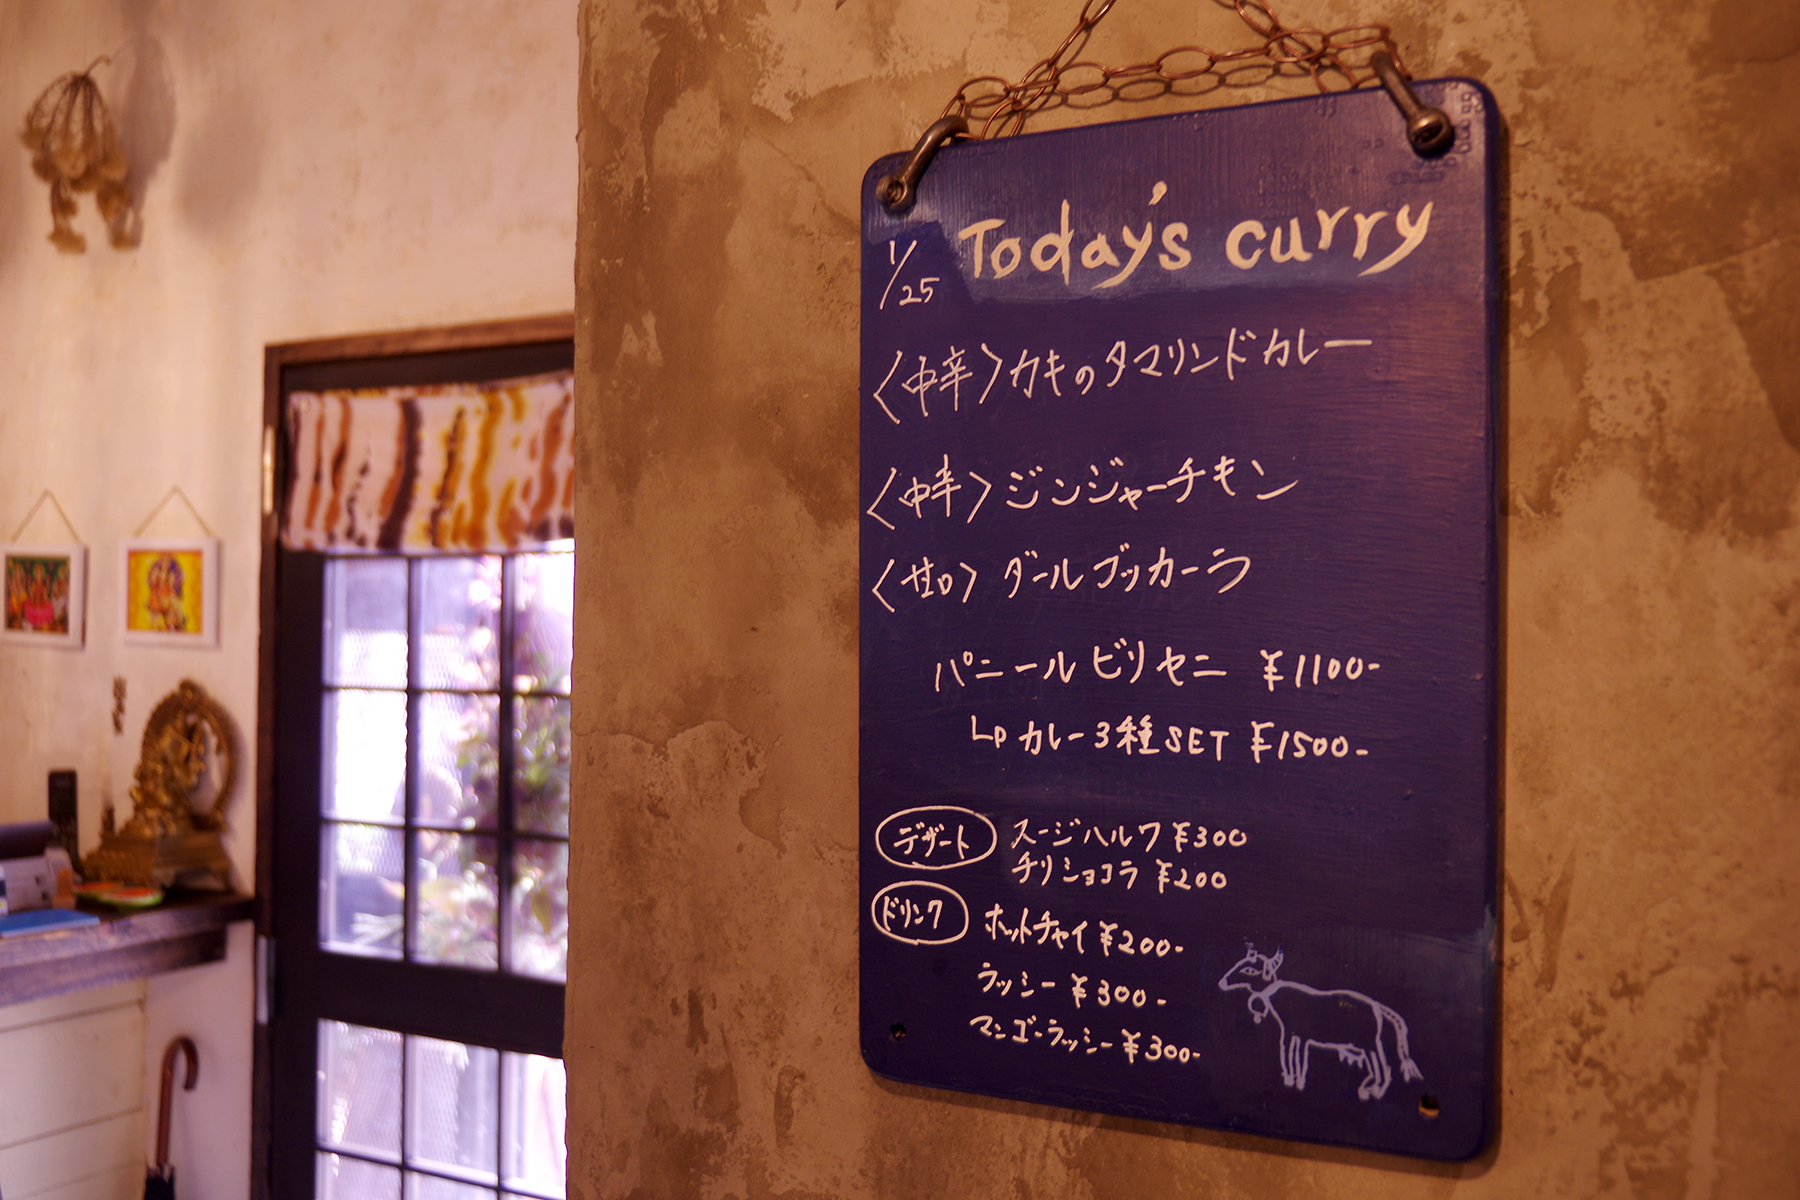 1/25 Today's curry
〈中辛〉カキのタマリンドカレー
〈中辛〉ジンジャーチキン
〈甘口〉ダールゴッカーラ
パニールビリセニ ¥1100-
カレー3種SET ¥1500-
デザート スージハルワ ¥300
チリショコラ ¥200
ドリンク ホットチャイ ¥200-
ラッシー ¥300-
マンゴーラッシー ¥300-